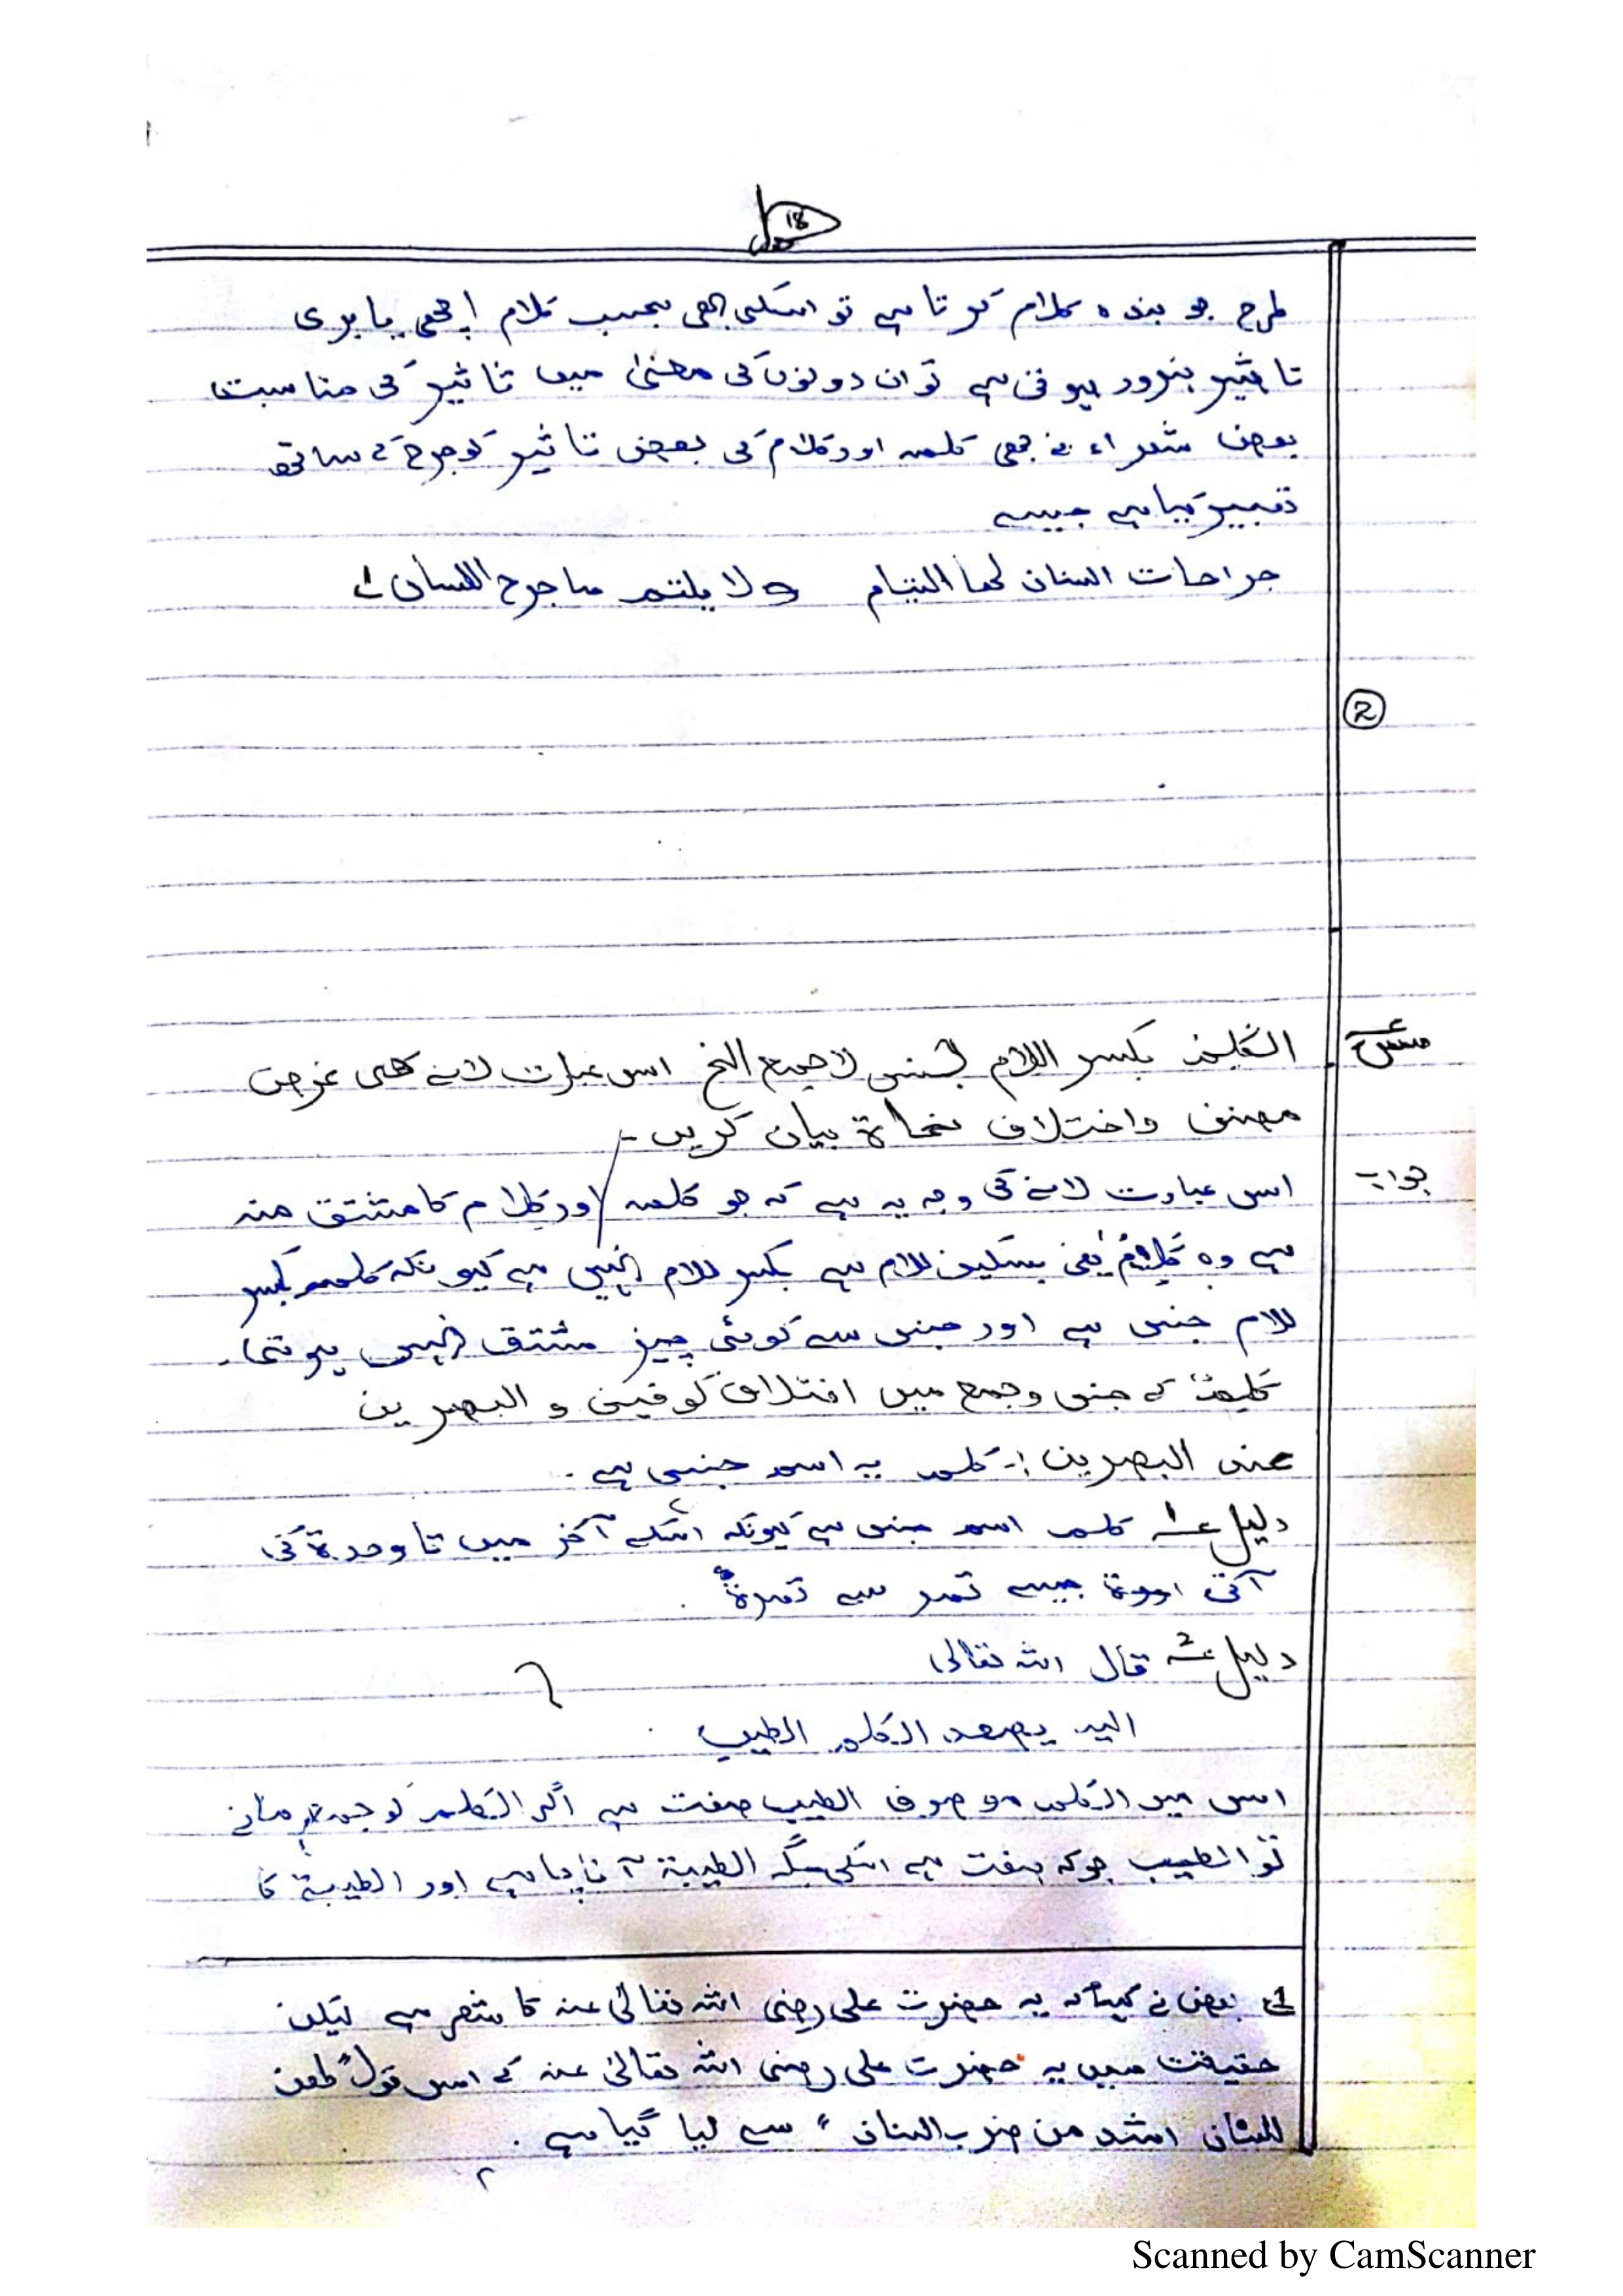 18
طرح جو بندہ کلام کرتا ہے تو اسکی بھی بحسب کلام اچھی یا بری
تاثیر ضرور ہوتی ہے تو ان دونوں کی معنیٰ میں تاثیر کی مناسبت
بعض شعراء نے بھی کلمہ اور کلام کی بعض تاثیر کو جرح کے ساتھ
تعبیر کیا ہے جیسے
جراحات السنان لھا التیام و لا یلتم ما جرح اللسان ۱ے
②
س
الکَلِمُ بکسر اللام جنس لا جمع الخ اس عبارت لانے کی غرض
مصنف و اختلاف نحاة بیان کریں۔
جواب
اس عبارت لانے کی وجہ یہ ہے کہ جو کلمہ اور کلام کا مشتق منہ
ہے وہ کلْمٌ یعنی بسکون لام ہے بکسر لام نہیں ہے کیونکہ کلمہ بکسر
لام جنس ہے اور جنس سے کوئی چیز مشتق نہیں ہوتی۔
کلمة کے جنس و جمع میں اختلاف کوفیین و البصریین
عند البصریین :۔ کلم یہ اسم جنس ہے۔
دلیل ۱ کلم اسم جنس ہے کیونکہ اسکے آخر میں تا وحدة کی
آتی ہے جیسے تمر سے تمرةٌ
دلیل ۲ قال اللہ تعالی
الیہ یصعد الکلم الطیب
اس میں الکلم موصوف الطیب صفت ہے اگر الکلم کو جمع مانے
تو الطیب جو کہ صفت ہے اسکی جگہ الطیبة آنا چاہیے اور الطیبة کا
۱ے بعض نے کہا کہ یہ حضرت علی رضی اللہ تعالیٰ عنہ کا شعر ہے لیکن
حقیقت میں یہ حضرت علی رضی اللہ تعالیٰ عنہ کے اس قول "طعن
اللسان اشد من ضرب السنان" سے لیا گیا ہے۔
Scanned by CamScanner